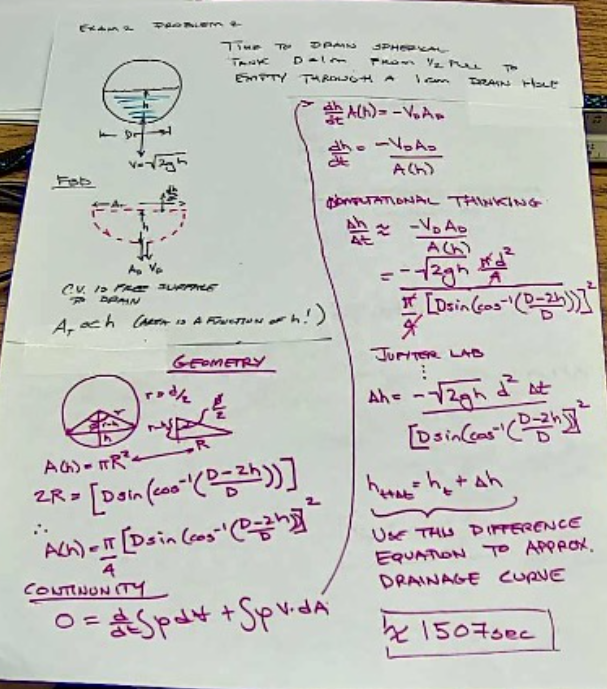 EXAM 2 PROBLEM 2
TIME TO DRAIN SPHERICAL
TANK D=1m FROM 1/2 FULL TO
EMPTY THROUGH A 1cm DRAIN HOLE
h
D
V=√2gh
FBD
dh/dt
A_T
h
A_D V_D
C.V. IS FREE SURFACE
TO DRAIN
A_T ∝ h (AREA IS A FUNCTION OF h!)
GEOMETRY
r=d/2
r
r-h
h
r-h
θ/2
R
A(h) = πR²
2R = [D sin(cos⁻¹((D-2h)/D))]
∴
A(h) = π/4 [D sin(cos⁻¹((D-2h)/D))]²
CONTINUITY
0 = d/dt ∫ρdV + ∫ρV·dA
dh/dt A(h) = -V_D A_D
dh/dt = -V_D A_D / A(h)
COMPUTATIONAL THINKING
Δh/Δt ≈ -V_D A_D / A(h)
= -√2gh π/4 d² / π/4 [D sin(cos⁻¹((D-2h)/D))]²
JUPYTER LAB
⋮
Δh = -√2gh d² Δt / [D sin(cos⁻¹((D-2h)/D))]²
h_t+Δt = h_t + Δh
USE THIS DIFFERENCE
EQUATION TO APPROX.
DRAINAGE CURVE
≈ 1507 sec